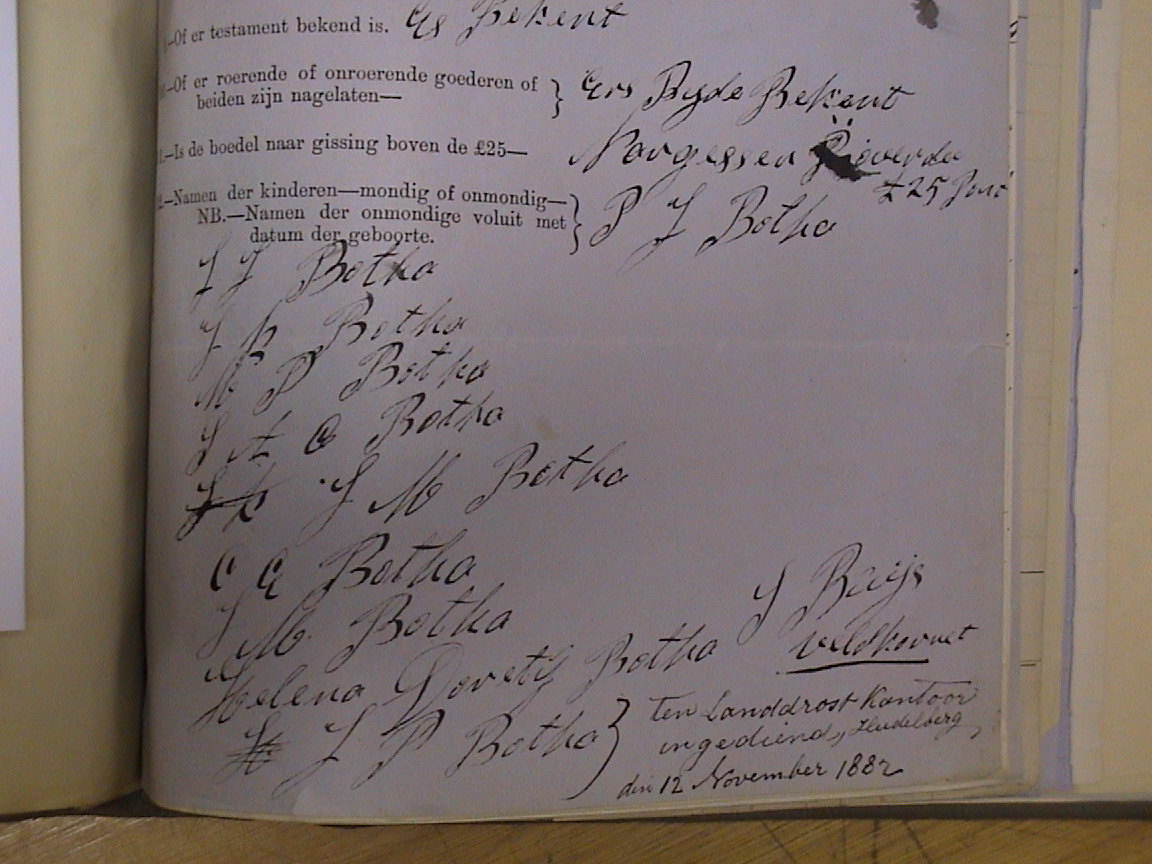 —Of er testament bekend is. Es Bekent
—Of er roerende of onroerende goederen of beiden zijn nagelaten— Ers Byde Bekent
—Is de boedel naar gissing boven de £25—
£25
—Namen der kinderen—mondig of onmondig—
NB.—Namen der onmondige voluit met datum der geboorte. P J Botha
J J Botha
J Botha
M P Botha
J A C Botha
J M Botha
C C Botha
J M Botha
Helena Botha
J P Botha
J Buijs
veldkornet
ten Landdrost Kantoor
ingediend, Heidelberg,
den 12 November 1882